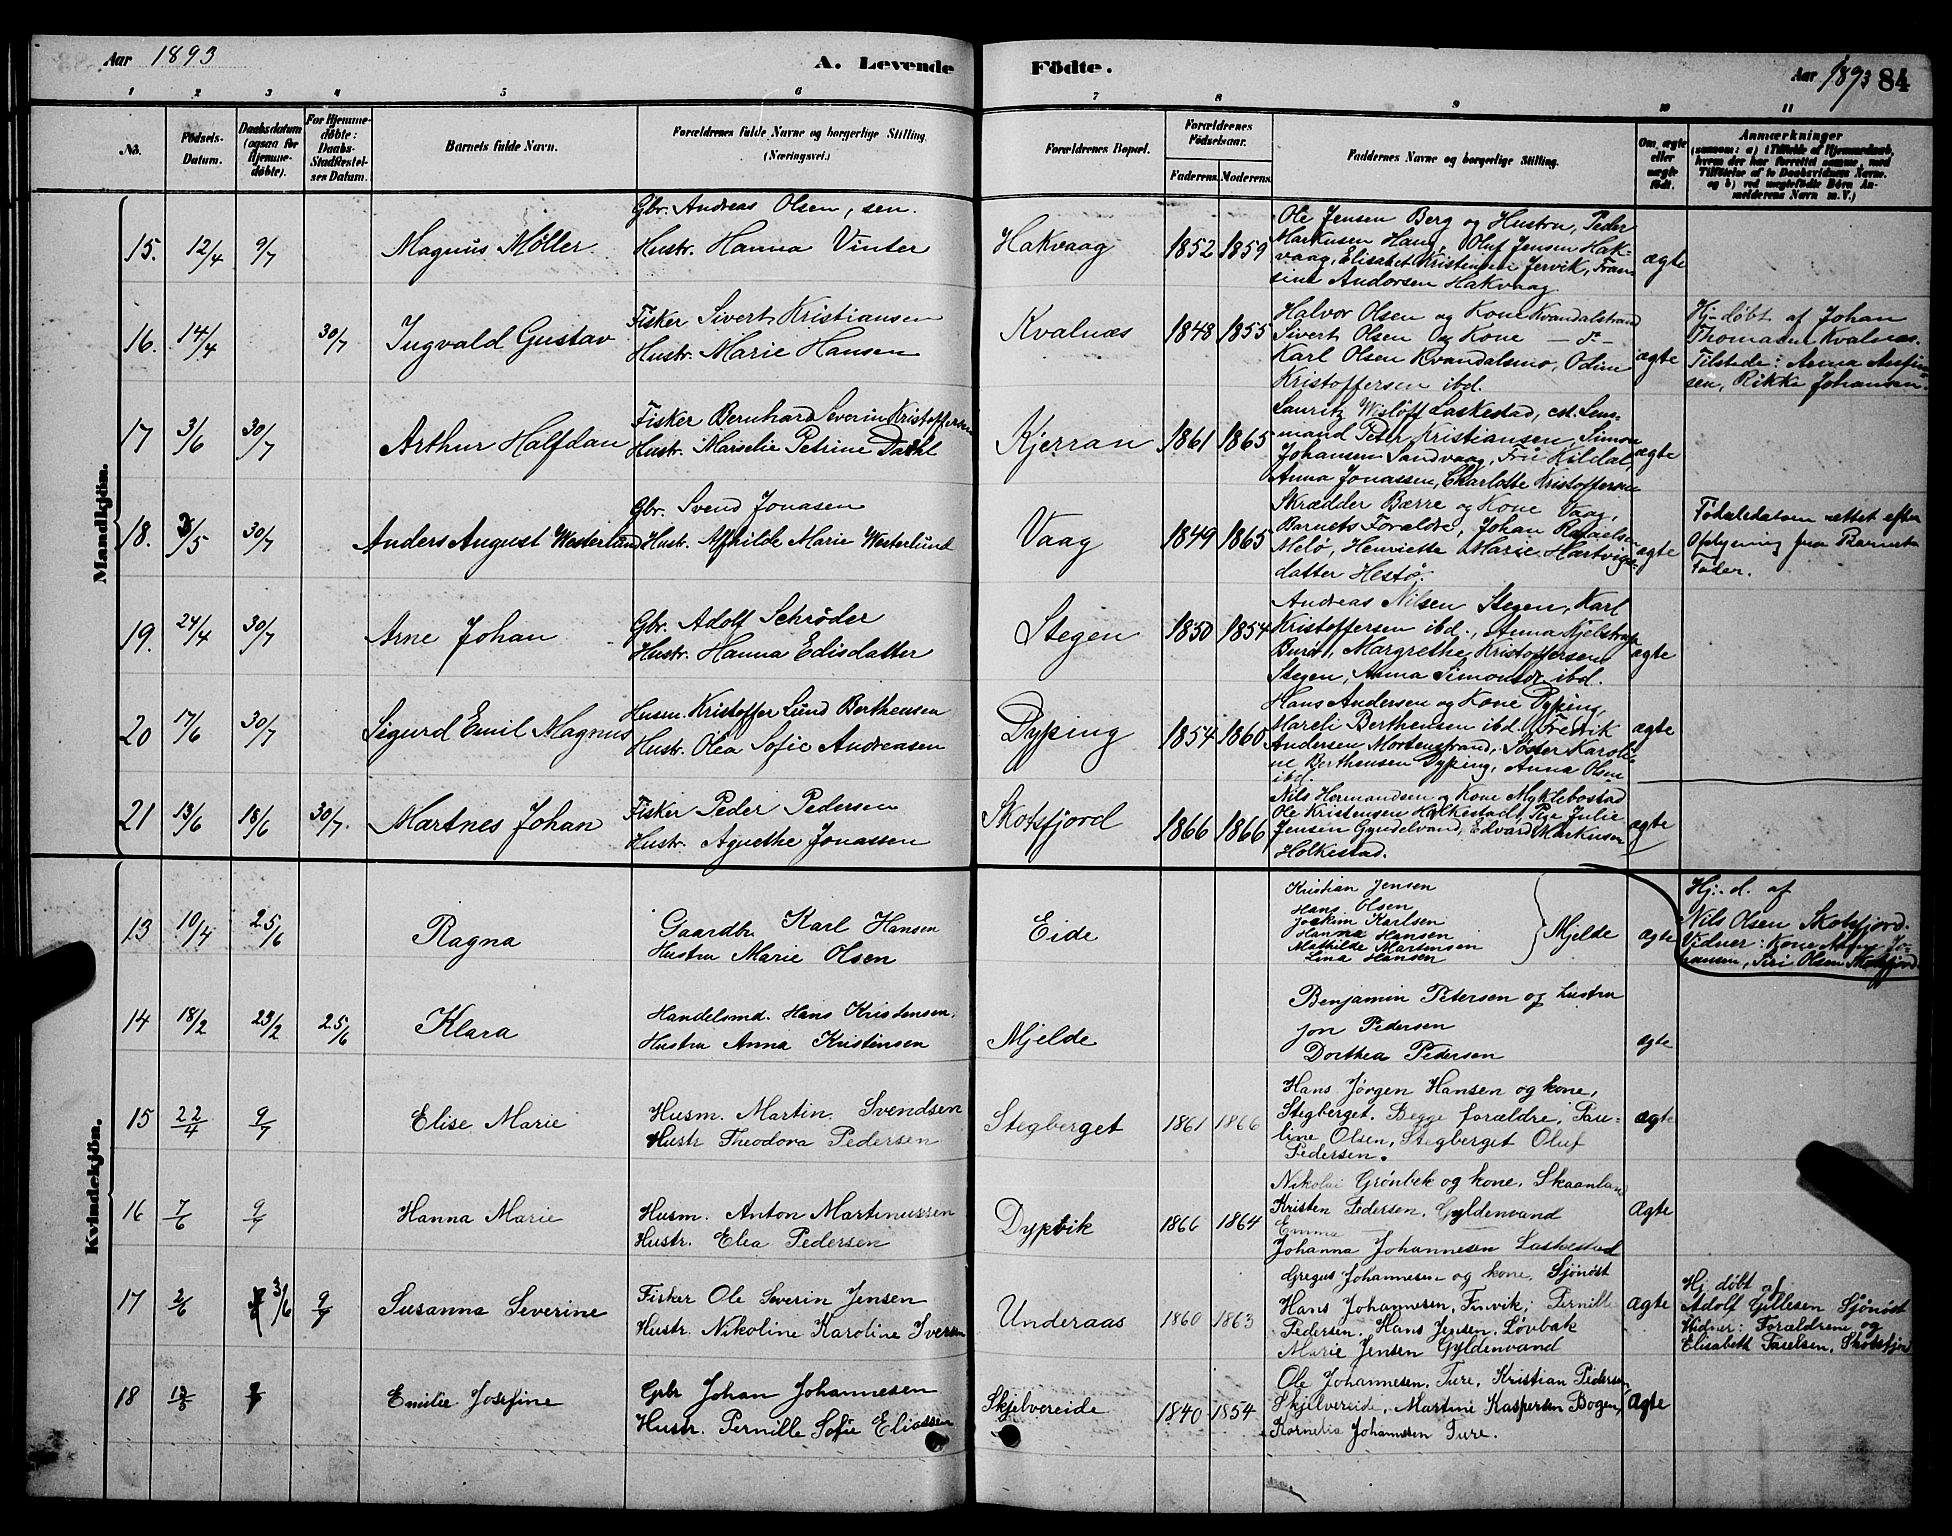 Aar 1893
A. Levende Födte.
Aar 1893 84
1 2 3 4 5 6 7 8 9 10 11
No.
Födsels-Datum.
Daabsdatum (ogsaa for Hjemmedöbte).
For Hjemmedöbte: Daabs-Stadfæstelses Datum.
Barnets fulde Navn.
Forældrenes fulde Navne og borgerlige Stilling. (Næringsvei.)
Forældrenes Bopæl.
Forældrenes Födselsaar.
Faderens. Moderens.
Faddernes Navne og borgerlige Stilling.
Om ægte eller uægte födt.
Anmærkninger
(saasom: a) i Tilfælde af Hjemmedaab, hvem der har forrettet samme, med Tilföielse af to Daabsvidners Navne, og b) ved uægtefödte Börn Anmelderens Navn m. V.)
Mandkjön.
15. 12/4 9/7 Magnus Møller
Gbr. Andreas Olsen, sen.
Hustr. Hanna Vinter
Hakvaag 1852 1859
Ole Jensen Berg og Hustru, Peder
Markusen Haug, Oluf Jensen Hak-
vaag, Elisabet Kristensen Jervik, Fran-
sine Andorsen Hakvaag
ægte
16. 14/4 30/7 Ingvald Gustav
Fisker Sivert Kristiansen
Hustr. Marie Hansen
Kvalnæs 1848 1855
Halvor Olsen og Kone Kvandalstrand
Sivert Olsen og Kone
Karl Olsen Kvandalsmo, Odine
Kristoffersen ibd.
ægte
Hj. døbt af Johan
Kvalnæs.
Tilstede: Anna
Rikke Johansen
17 3/6 30/7 Arthur Halfdan
Fisker Bernhard Severin Kristoffersen
Hustr. Marselie Petrine Dahl
Kjerran 1861 1865
Lauritz Wisløff Laskestad, cst. Lens-
mand Peter Kristiansen, Simon
Johansen Sandvaag, Fru Kildal,
Anna Jonassen, Charlotte Kristoffersen
ægte
18. 3/5 30/7 Anders August Westerlund
Gbr. Svend Jonasen
Hustr. Alfhilde Marie Westerlund
Vaag 1849 1865
Skrædder Bærre og Kone Vaag,
Barnets Forældre, Johan Rafaelsen
Melø, Henriette Marie Hartvigs-
datter Hestø.
ægte
Fødselsdatum rettet efter
Oplysning fra Barnets
Fader.
19. 24/4 30/7 Arne Johan
Gbr. Adolf Schrøder
Hustr. Hanna Edisdatter
Stegen 1850 1854
Andreas Nilsen Stegen, Karl
Kristoffersen ibd., Anna Kjelstrup
Margrethe Kristoffersen
Stegen, Anna Simonsdr. ibd.
ægte
20 17/6 30/7 Sigurd Emil Magnus
Husm. Kristoffer Lund Berthensen
Hustr. Olea Sofie Andreasen
Dyping 1854 1860
Hans Andersen og Kone Dyping,
Mareli Berthensen ibd., Fredrik
Andersen Mortenstrand, Søster Karoli-
ne Berthensen Dyping, Anna Olsen
ibd.
ægte
21 13/6 18/6 30/7. Martnes Johan
Fisker Peder Pedersen
Hustr. Agnethe Jonassen
Skotsfjord 1866 1866
Nils Hermandsen og Kone Myklebostad
Ole Kristensen Holkestad, Pige Julie
Jensen Gyndelvand, Edvard Markusen
Holkestad.
ægte
Kvindekjön.
13 10/4 25/6 Ragna
Gaardb. Karl Hansen
Hustru Marie Olsen
Eide
Kristian Jensen
Hans Olsen
Joakim Karlsen
Hanna Hansen
Mathilde Martensen
Lina Hansen
Mjelde
ægte
Hj. d. af
Nils Olsen Skotsfjord.
Vidner: Kone Jo-
hansen, Siri Olsen Skotsfjord
14 18/2 23/2 25/6 Klara
Handelsmd. Hans Kristensen,
Hustru Anna Kristensen
Mjelde
Benjamin Petersen og hustru
Jon Pedersen
Dorthea Pedersen
ægte
15 22/4 9/7 Elise Marie
Husm. Martin Svendsen
Hustr Theodora Pedersen
Stegberget 1861 1866
Hans Jørgen Hansen og kone,
Stegberget. Begge forældre, Pau-
line Olsen, Stegberget Oluf
Pedersen.
ægte
16 7/6 9/7 Hanna Marie
Husm. Anton Martinussen
Hustr. Elea Pedersen
Dypvik 1866 1864
Nikolai Grønbek og kone, Skaanland
Kristen Pedersen, Gyldenvand
Emma
Johanna Johannesen Laskestad
Ægte
17 2/6 3/6 9/7 Susanna Severine
Fisker Ole Severin Jensen
Hustr. Nikoline Karoline Iversen
Underaas 1860 1863
Gregus Johannesen og kone, Sjønøst
Hans Johannesen, Finvik; Pernille
Pedersen, Hans Jensen, Løvbak
Marie Jensen Gyldenvand
Ægte
Hj. døbt af
Adolf Gillesen Sjønøst
Vidner: Forældrene og
Elisabeth Paulsen, Skotsfjord
18 Emilie Josefine
Grbr Johan Johannesen
Hustr. Pernille Sofie Eliassen
Skjelvereide 1840 1854
Ole Johannesen, Ture, Kristian Pedersen,
Skjelvereide, Martine Kaspersen Bogen,
Kornelia Johannesen Ture.
Ægte